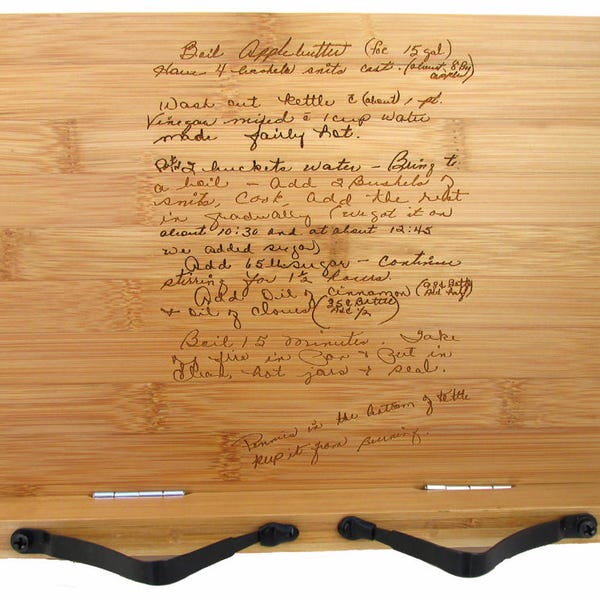 Boil Applebutter (for 15 gal)
Have 4 bushels snits cast. (about 8 Bu apples)
Wash out Kettle c̄ (about) 1 pt.
Vinegar mixed c̄ 1 cup water
made fairly hot.
Put 2 buckets water - Bring to
a boil - Add 2 Bushels of
snits, Cook, Add the rest
in gradually (we got it on
about 10:30 and at about 12:45
we added sugar)
Add 65 lb sugar - continue
stirring for 1 1/2 hours.
Add Oil of Cinnamon
& Oil of Cloves (25¢ Bottle
Boil 15 minutes. Take
off fire in Pan & Put in
clean, hot jars & seal.
Pennies in the bottom of kettle
keep it from burning.